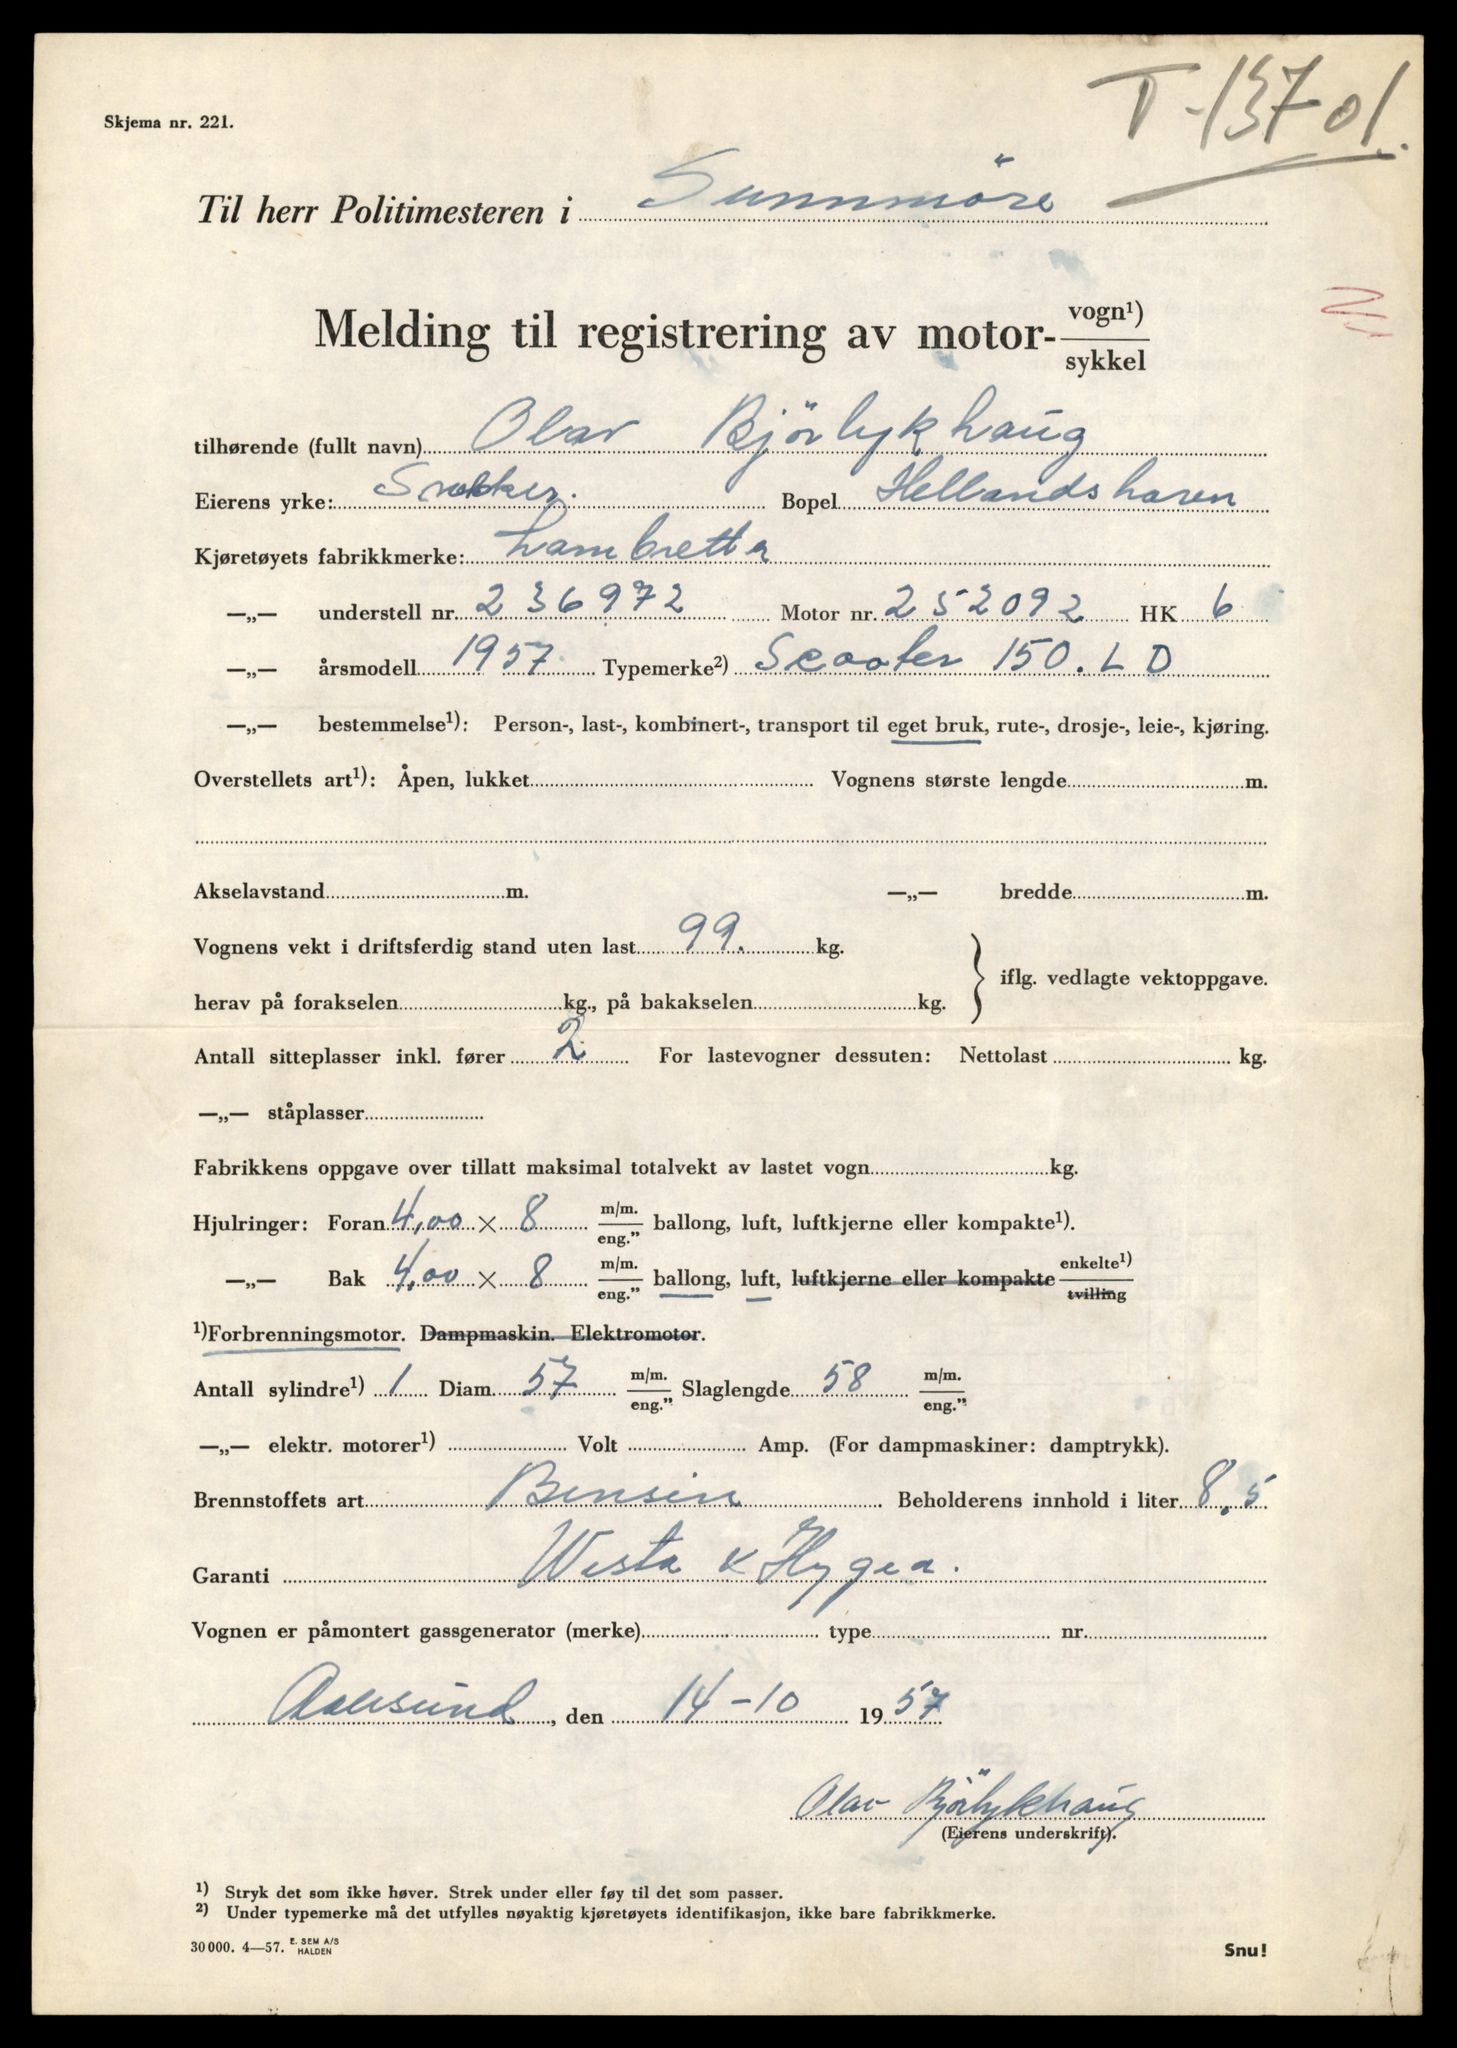 T-13701.
Skjema nr. 221.
Til herr Politimesteren i Sunnmöre
Melding til registrering av motor- vogn¹) / sykkel
tilhørende (fullt navn) Olav Bjørlykhaug
Eierens yrke: Snekker. Bopel Hellandshavn
Kjøretøyets fabrikkmerke: Lambretta
—„— understell nr. 236972 Motor nr. 252092 HK 6
—„— årsmodell 1957. Typemerke²) Scooter 150. L D
—„— bestemmelse¹): Person-, last-, kombinert-, transport til eget bruk, rute-, drosje-, leie-, kjøring.
Overstellets art¹): Åpen, lukket Vognens største lengde m.
Akselavstand m. —„— bredde m.
Vognens vekt i driftsferdig stand uten last 99. kg.
iflg. vedlagte vektoppgave.
herav på forakselen kg., på bakakselen kg.
Antall sitteplasser inkl. fører 2 For lastevogner dessuten: Nettolast kg.
—„— ståplasser
Fabrikkens oppgave over tillatt maksimal totalvekt av lastet vogn kg.
Hjulringer: Foran 4,00 × 8 m/m. / eng.” ballong, luft, luftkjerne eller kompakte¹).
—„— Bak 4,00 × 8 m/m. / eng.” ballong, luft, luftkjerne eller kompakte enkelte¹) / tvilling
¹)Forbrenningsmotor. Dampmaskin. Elektromotor.
Antall sylindre¹) 1 Diam. 57 m/m. / eng.” Slaglengde 58 m/m. / eng.”
—„— elektr. motorer¹) Volt Amp. (For dampmaskiner: damptrykk).
Brennstoffets art Bensin Beholderens innhold i liter 8,5
Garanti Vesta & Hygea.
Vognen er påmontert gassgenerator (merke) type nr.
Aalesund, den 14-10 1957
Olav Bjørlykhaug
(Eierens underskrift).
¹) Stryk det som ikke høver. Strek under eller føy til det som passer.
²) Under typemerke må det utfylles nøyaktig kjøretøyets identifikasjon, ikke bare fabrikkmerke.
30000. 4—57. E. SEM A/S HALDEN
Snu!